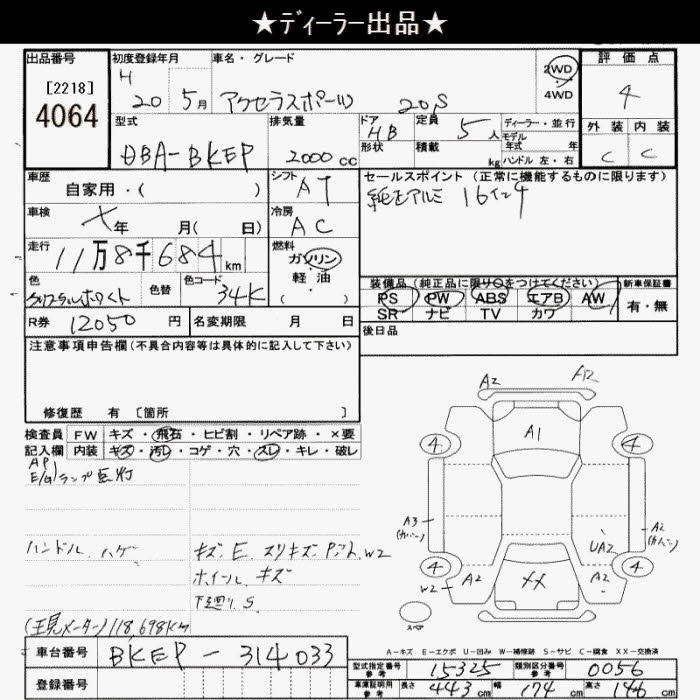 ★ディーラー出品★
出品番号
[2218]
4064
初度登録年月
H
20 5月
車名・グレード
アクセラスポーツ 20S
2WD
・
4WD
評価点
4
外装 内装
C C
型式
DBA-BKEP
排気量
2000cc
ドア
HB
形状
定員
5人
積載
kg
ディーラー・並行
モデル
年式 年
ハンドル 左・右
車歴
自家用・( )
シフト
AT
セールスポイント (正常に機能するものに限ります)
純正アルミ 16インチ
車検
年 月( 日)
冷房
AC
走行
11万8千684km
燃料
ガソリン
・
軽・油
( )
色
クリスタルホワイト
色替
色コード
34K
装備品 (純正品に限り○をつけてください)
PS PW ABS エアB AW
SR ナビ TV カワ
新車保証書
有・無
R券 12050円
名変期限 月 日
後日品
注意事項申告欄(不具合内容等は具体的に記入して下さい)
修復歴 有 [箇所 ]
検査員 FW キズ・飛石・ヒビ割・リペア跡・×要
記入欄 内装 キズ・汚レ・コゲ・穴・スレ・キレ・破レ
ランプ点灯
ハンドル ハゲ
キズ、E、スリキズ、P
W2
ホイール キズ
下廻り S
(現メーター)118,698km
A2
A1
4 4
A3
(カバー)
A2
(カバー)
UA2
4 4
W2 A2
XX
A2
スペア
A-キズ E-エクボ U-凹み W-補修跡 S-サビ C-腐食 XX-交換済
車台番号 BKEP-314033
登録番号
型式指定番号
参考
15325
類別区分番号
参考
0056
車庫証明用
参考
長さ 443cm 幅 174cm 高さ 146cm